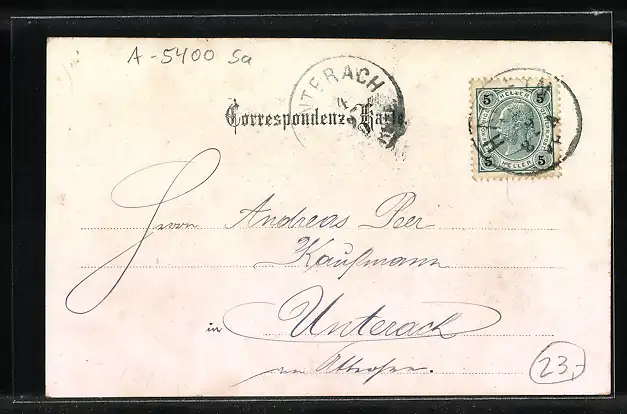 A-5400 Sa
UNTERACH
Correspondenz-Karte
5 HELLER 5
5 HELLER 5
Herrn Andreas
Kaufmann
in Unterach
am Attersee.
23,-